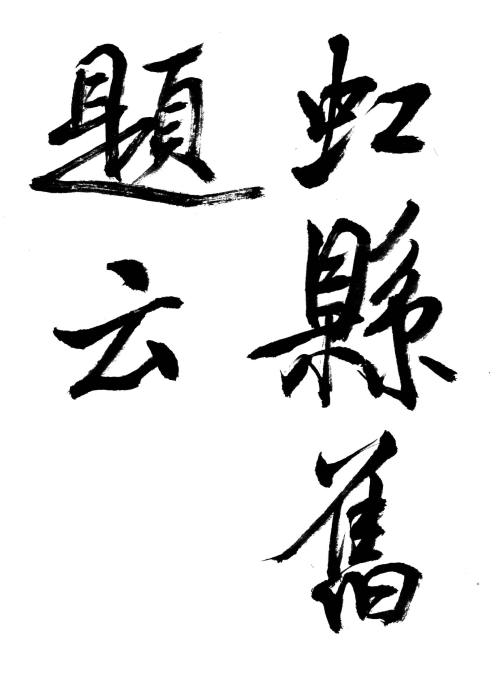 虹縣舊
題云